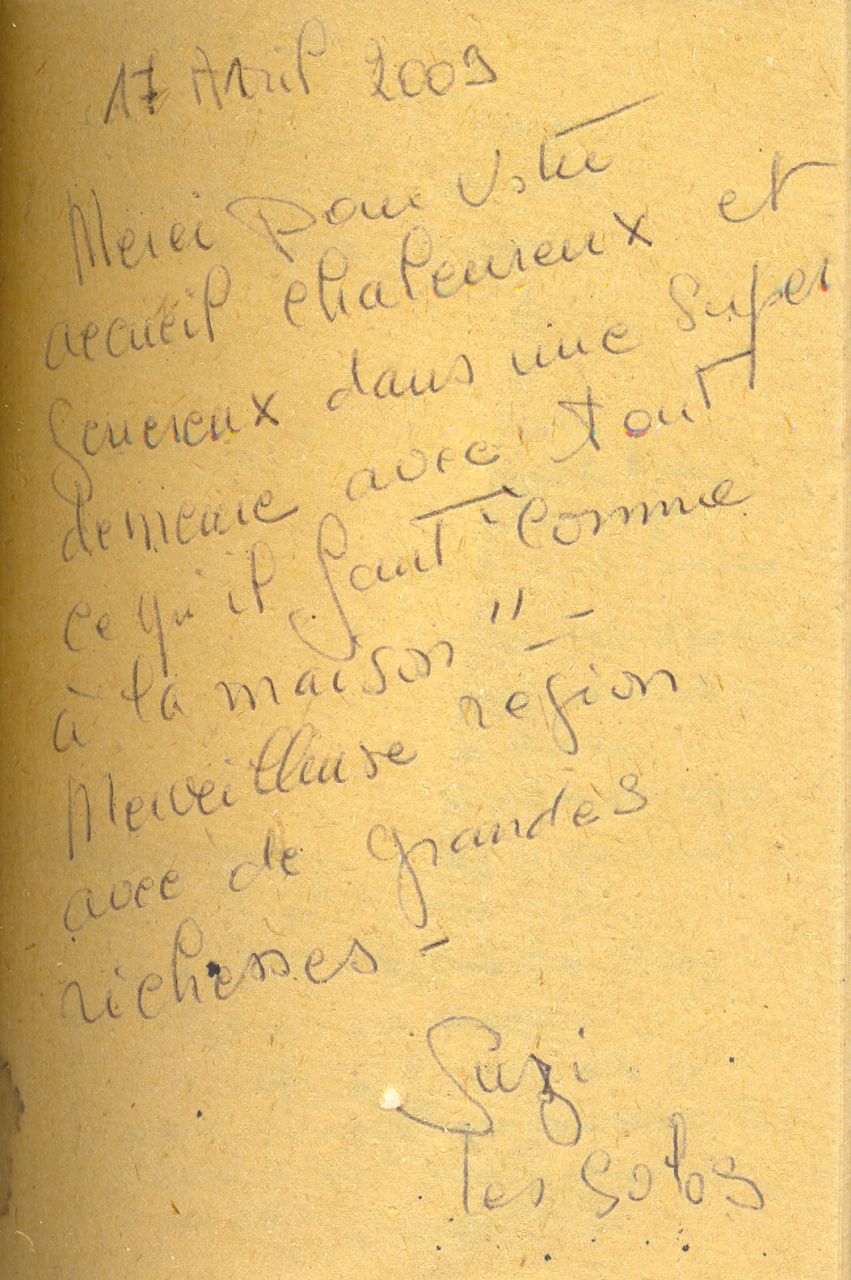 17 Avril 2009
Merci pour votre
accueil chaleureux et
genereux dans une super
demeure avec tout
ce qu'il faut "comme
à la maison" -
Merveilleuse région
avec de grandes
richesses -
Suzi
Les Solos